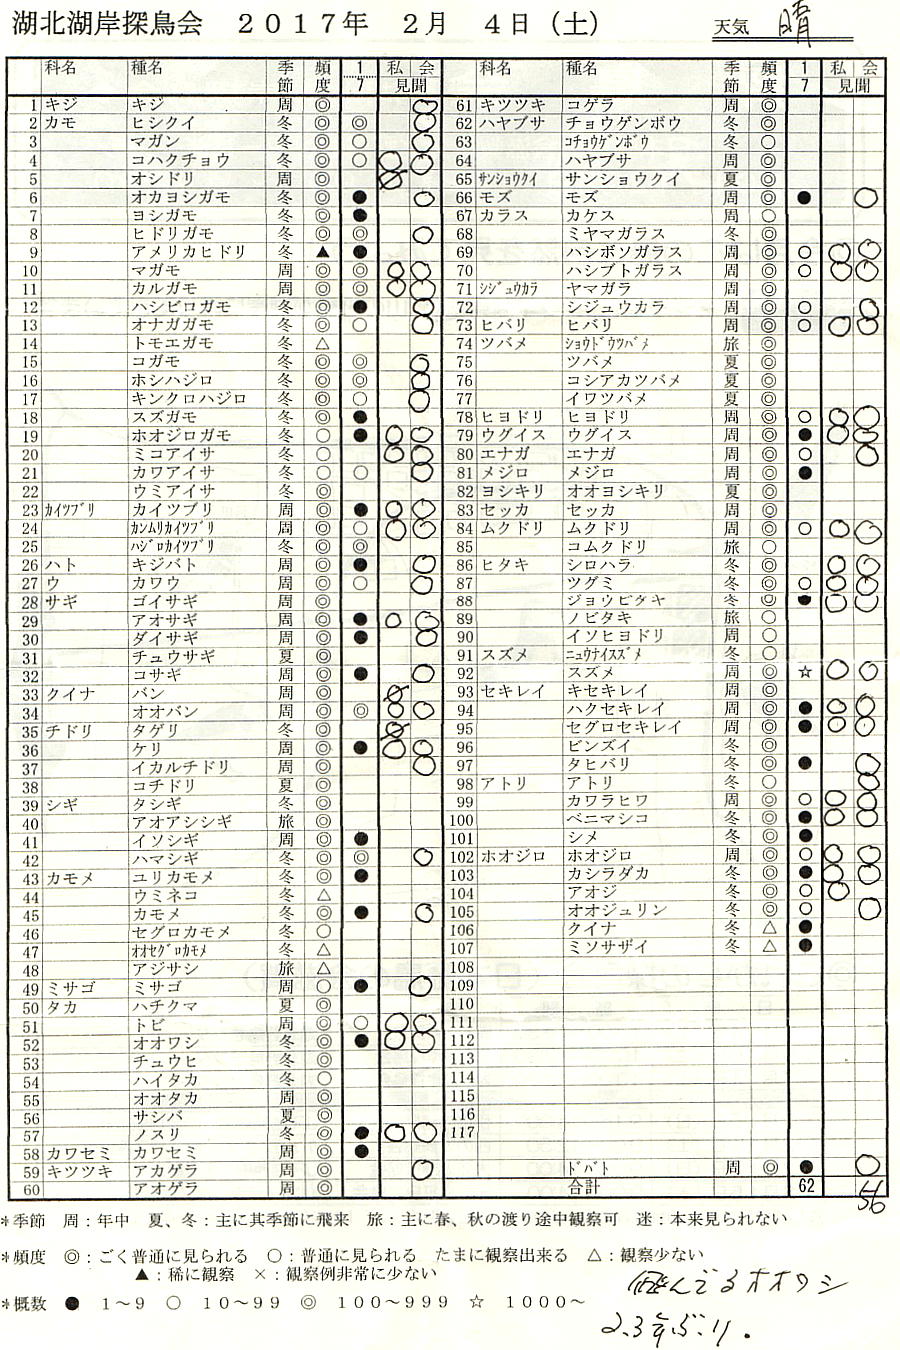 湖北湖岸探鳥会 ２０１７年 ２月 ４日（土） 天気 晴
科名 種名 季節 頻度 1/7 私 会 見聞 科名 種名 季節 頻度 1/7 私 会 見聞
1 キジ キジ 周 ◎ ○ 61 キツツキ コゲラ 周 ◎
2 カモ ヒシクイ 冬 ◎ ◎ ○ 62 ハヤブサ チョウゲンボウ 冬 ◎
3 マガン 冬 ◎ ○ ○ 63 ｺﾁｮｳｹﾞﾝﾎﾞｳ 冬 ○
4 コハクチョウ 冬 ◎ ○ ○ ○ 64 ハヤブサ 周 ◎
5 オシドリ 周 ◎ 65 ｻﾝｼｮｳｸｲ サンショウクイ 夏 ◎
6 オカヨシガモ 冬 ◎ ● ○ 66 モズ モズ 周 ◎ ● ○
7 ヨシガモ 冬 ◎ ● 67 カラス カケス 周 ○
8 ヒドリガモ 冬 ◎ ◎ ○ 68 ミヤマガラス 冬 ◎
9 アメリカヒドリ 冬 ▲ ● 69 ハシボソガラス 周 ◎ ○ ○ ○
10 マガモ 周 ◎ ◎ ○ ○ 70 ハシブトガラス 周 ◎ ○ ○ ○
11 カルガモ 周 ◎ ◎ ○ ○ 71 ｼｼﾞｭｳｶﾗ ヤマガラ 周 ◎
12 ハシビロガモ 冬 ◎ ● ○ 72 シジュウカラ 周 ◎ ○ ○
13 オナガガモ 冬 ◎ ○ ○ 73 ヒバリ ヒバリ 周 ◎ ○ ○ ○
14 トモエガモ 冬 △ 74 ツバメ ｼｮｳﾄﾞｳﾂﾊﾞﾒ 旅 ◎
15 コガモ 冬 ◎ ◎ ○ 75 ツバメ 夏 ◎
16 ホシハジロ 冬 ◎ ◎ ○ 76 コシアカツバメ 夏 ◎
17 キンクロハジロ 冬 ◎ ○ ○ 77 イワツバメ 夏 ◎
18 スズガモ 冬 ◎ ● 78 ヒヨドリ ヒヨドリ 周 ◎ ○ ○ ○
19 ホオジロガモ 冬 ○ ● ○ ○ 79 ウグイス ウグイス 周 ◎ ● ○ ○
20 ミコアイサ 冬 ○ ○ ○ 80 エナガ エナガ 周 ◎ ○ ○
21 カワアイサ 冬 ○ ○ ○ 81 メジロ メジロ 周 ◎ ●
22 ウミアイサ 冬 ◎ 82 ヨシキリ オオヨシキリ 夏 ◎
23 ｶｲﾂﾌﾞﾘ カイツブリ 周 ◎ ● ○ ○ 83 セッカ セッカ 周 ◎
24 ｶﾝﾑﾘｶｲﾂﾌﾞﾘ 周 ◎ ○ ○ ○ 84 ムクドリ ムクドリ 周 ◎ ○ ○ ○
25 ﾊｼﾞﾛｶｲﾂﾌﾞﾘ 冬 ◎ ◎ 85 コムクドリ 旅 ○
26 ハト キジバト 周 ◎ ● ○ 86 ヒタキ シロハラ 冬 ◎ ○ ○
27 ウ カワウ 周 ◎ ○ ○ 87 ツグミ 冬 ◎ ○ ○ ○
28 サギ ゴイサギ 周 ◎ 88 ジョウビタキ 冬 ◎ ● ○ ○
29 アオサギ 周 ◎ ● ○ ○ 89 ノビタキ 旅 ○
30 ダイサギ 周 ◎ ● ○ 90 イソヒヨドリ 周 ○
31 チュウサギ 夏 ◎ 91 スズメ ﾆｭｳﾅｲｽｽﾞﾒ 冬 ○
32 コサギ 周 ◎ ● ○ 92 スズメ 周 ◎ ☆ ○ ○
33 クイナ バン 周 ◎ 93 セキレイ キセキレイ 周 ◎
34 オオバン 周 ◎ ◎ ○ ○ 94 ハクセキレイ 周 ◎ ● ○ ○
35 チドリ タゲリ 冬 ◎ 95 セグロセキレイ 周 ◎ ● ○ ○
36 ケリ 周 ◎ ● ○ ○ 96 ビンズイ 冬 ◎
37 イカルチドリ 周 ◎ ○ 97 タヒバリ 冬 ◎ ● ○
38 コチドリ 夏 ◎ 98 アトリ アトリ 冬 ○ ○
39 シギ タシギ 冬 ◎ 99 カワラヒワ 周 ◎ ○ ○ ○
40 アオアシシギ 旅 ◎ 100 ベニマシコ 冬 ◎ ● ○ ○
41 イソシギ 周 ◎ ● 101 シメ 冬 ◎ ●
42 ハマシギ 冬 ◎ ◎ ○ 102 ホオジロ ホオジロ 周 ◎ ○ ○ ○
43 カモメ ユリカモメ 冬 ◎ ● 103 カシラダカ 冬 ◎ ● ○ ○
44 ウミネコ 冬 △ 104 アオジ 冬 ◎ ○ ○
45 カモメ 冬 ◎ ● ○ 105 オオジュリン 冬 ◎ ○ ○
46 セグロカモメ 冬 ○ 106 クイナ 冬 △ ●
47 ｵｵｾｸﾞﾛｶﾓﾒ 冬 △ 107 ミソサザイ 冬 △ ●
48 アジサシ 旅 △ 108
49 ミサゴ ミサゴ 周 ○ ● ○ 109
50 タカ ハチクマ 夏 ◎ 110
51 トビ 周 ◎ ○ ○ ○ 111
52 オオワシ 冬 ◎ ● ○ ○ 112
53 チュウヒ 冬 ◎ 113
54 ハイタカ 冬 ○ 114
55 オオタカ 周 ◎ 115
56 サシバ 夏 ◎ 116
57 ノスリ 冬 ◎ ● ○ ○ 117
58 カワセミ カワセミ 周 ◎ ●
59 キツツキ アカゲラ 周 ◎ ○ ﾄﾞﾊﾞﾄ 周 ◎ ● ○
60 アオゲラ 周 ◎ 合計 62 56
*季節 周：年中 夏、冬：主に其季節に飛来 旅：主に春、秋の渡り途中観察可 迷：本来見られない
*頻度 ◎：ごく普通に見られる ○：普通に見られる たまに観察出来る △：観察少ない
▲：稀に観察 ×：観察例非常に少ない
*概数 ● １～９ ○ １０～９９ ◎ １００～９９９ ☆ １０００～
飛んでるオオワシ
2.3年ぶり.